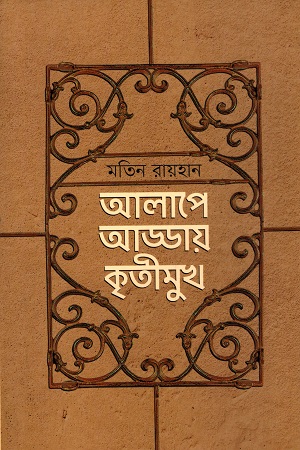 মতিন রায়হান
আলাপে
আড্ডায়
কৃতীমুখ